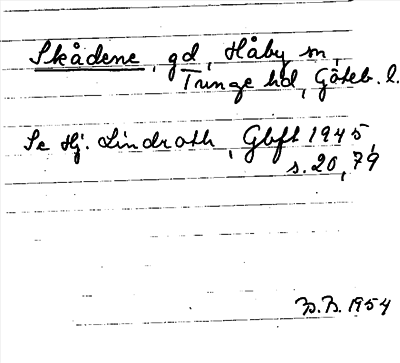 Skådene, gd, Håby sn,
Tunge hd, Göteb. l.
Se Hj. Lindroth, Gbft 1945,
s. 20, 79
B.B. 1954